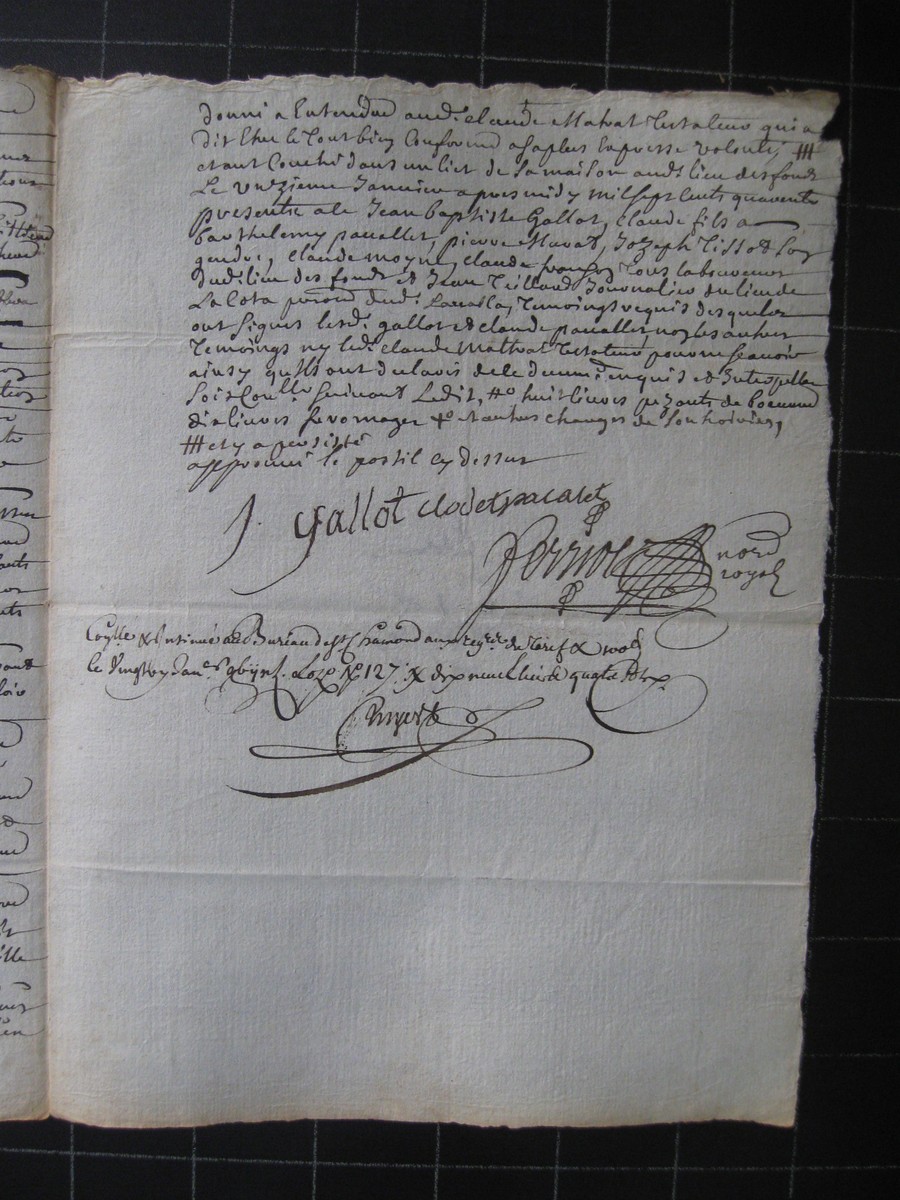 donné a Entendre aud. claude Mathat testateur qui a
dit Etre le tout bien Conforme a sa plus Expresse volonté, ⧻
etant Couché dans un lict de sa maison aud. lieu des fonds
Le unzieme Janvier apres midy mil sept cents quarente
presents a ce Jean baptiste Gallot, Claude fils a
barthelemy pacallet, pierre Mavat, Jozeph tissot Son
gendre, claude moyne, claude françois tous laboureurs
dud. lieu des fonds et Jean teillard Journalier du lieu de
La Cota temoings requis desquels
ont signés lesd. gallot et claude pacallet, non les autres
temoings ny led. claude Mathat testateur pour ne scavoir
ainsy qu'ils ont declaré de ce Enquis et Interpellés
Soit Contlle suivant L'edit, # huit livres pezants de
dix livres fromage # et autres charges de son hoirie,
⧻ et y a persisté
approuvé le postil cy dessus
J. Gallot clodet pacalet
royal
Controllé & Insinué au Bureau de St Chamond aux regres du tarif &
le Vingt Janer Nº 127, & dix neuf livres quatre sols